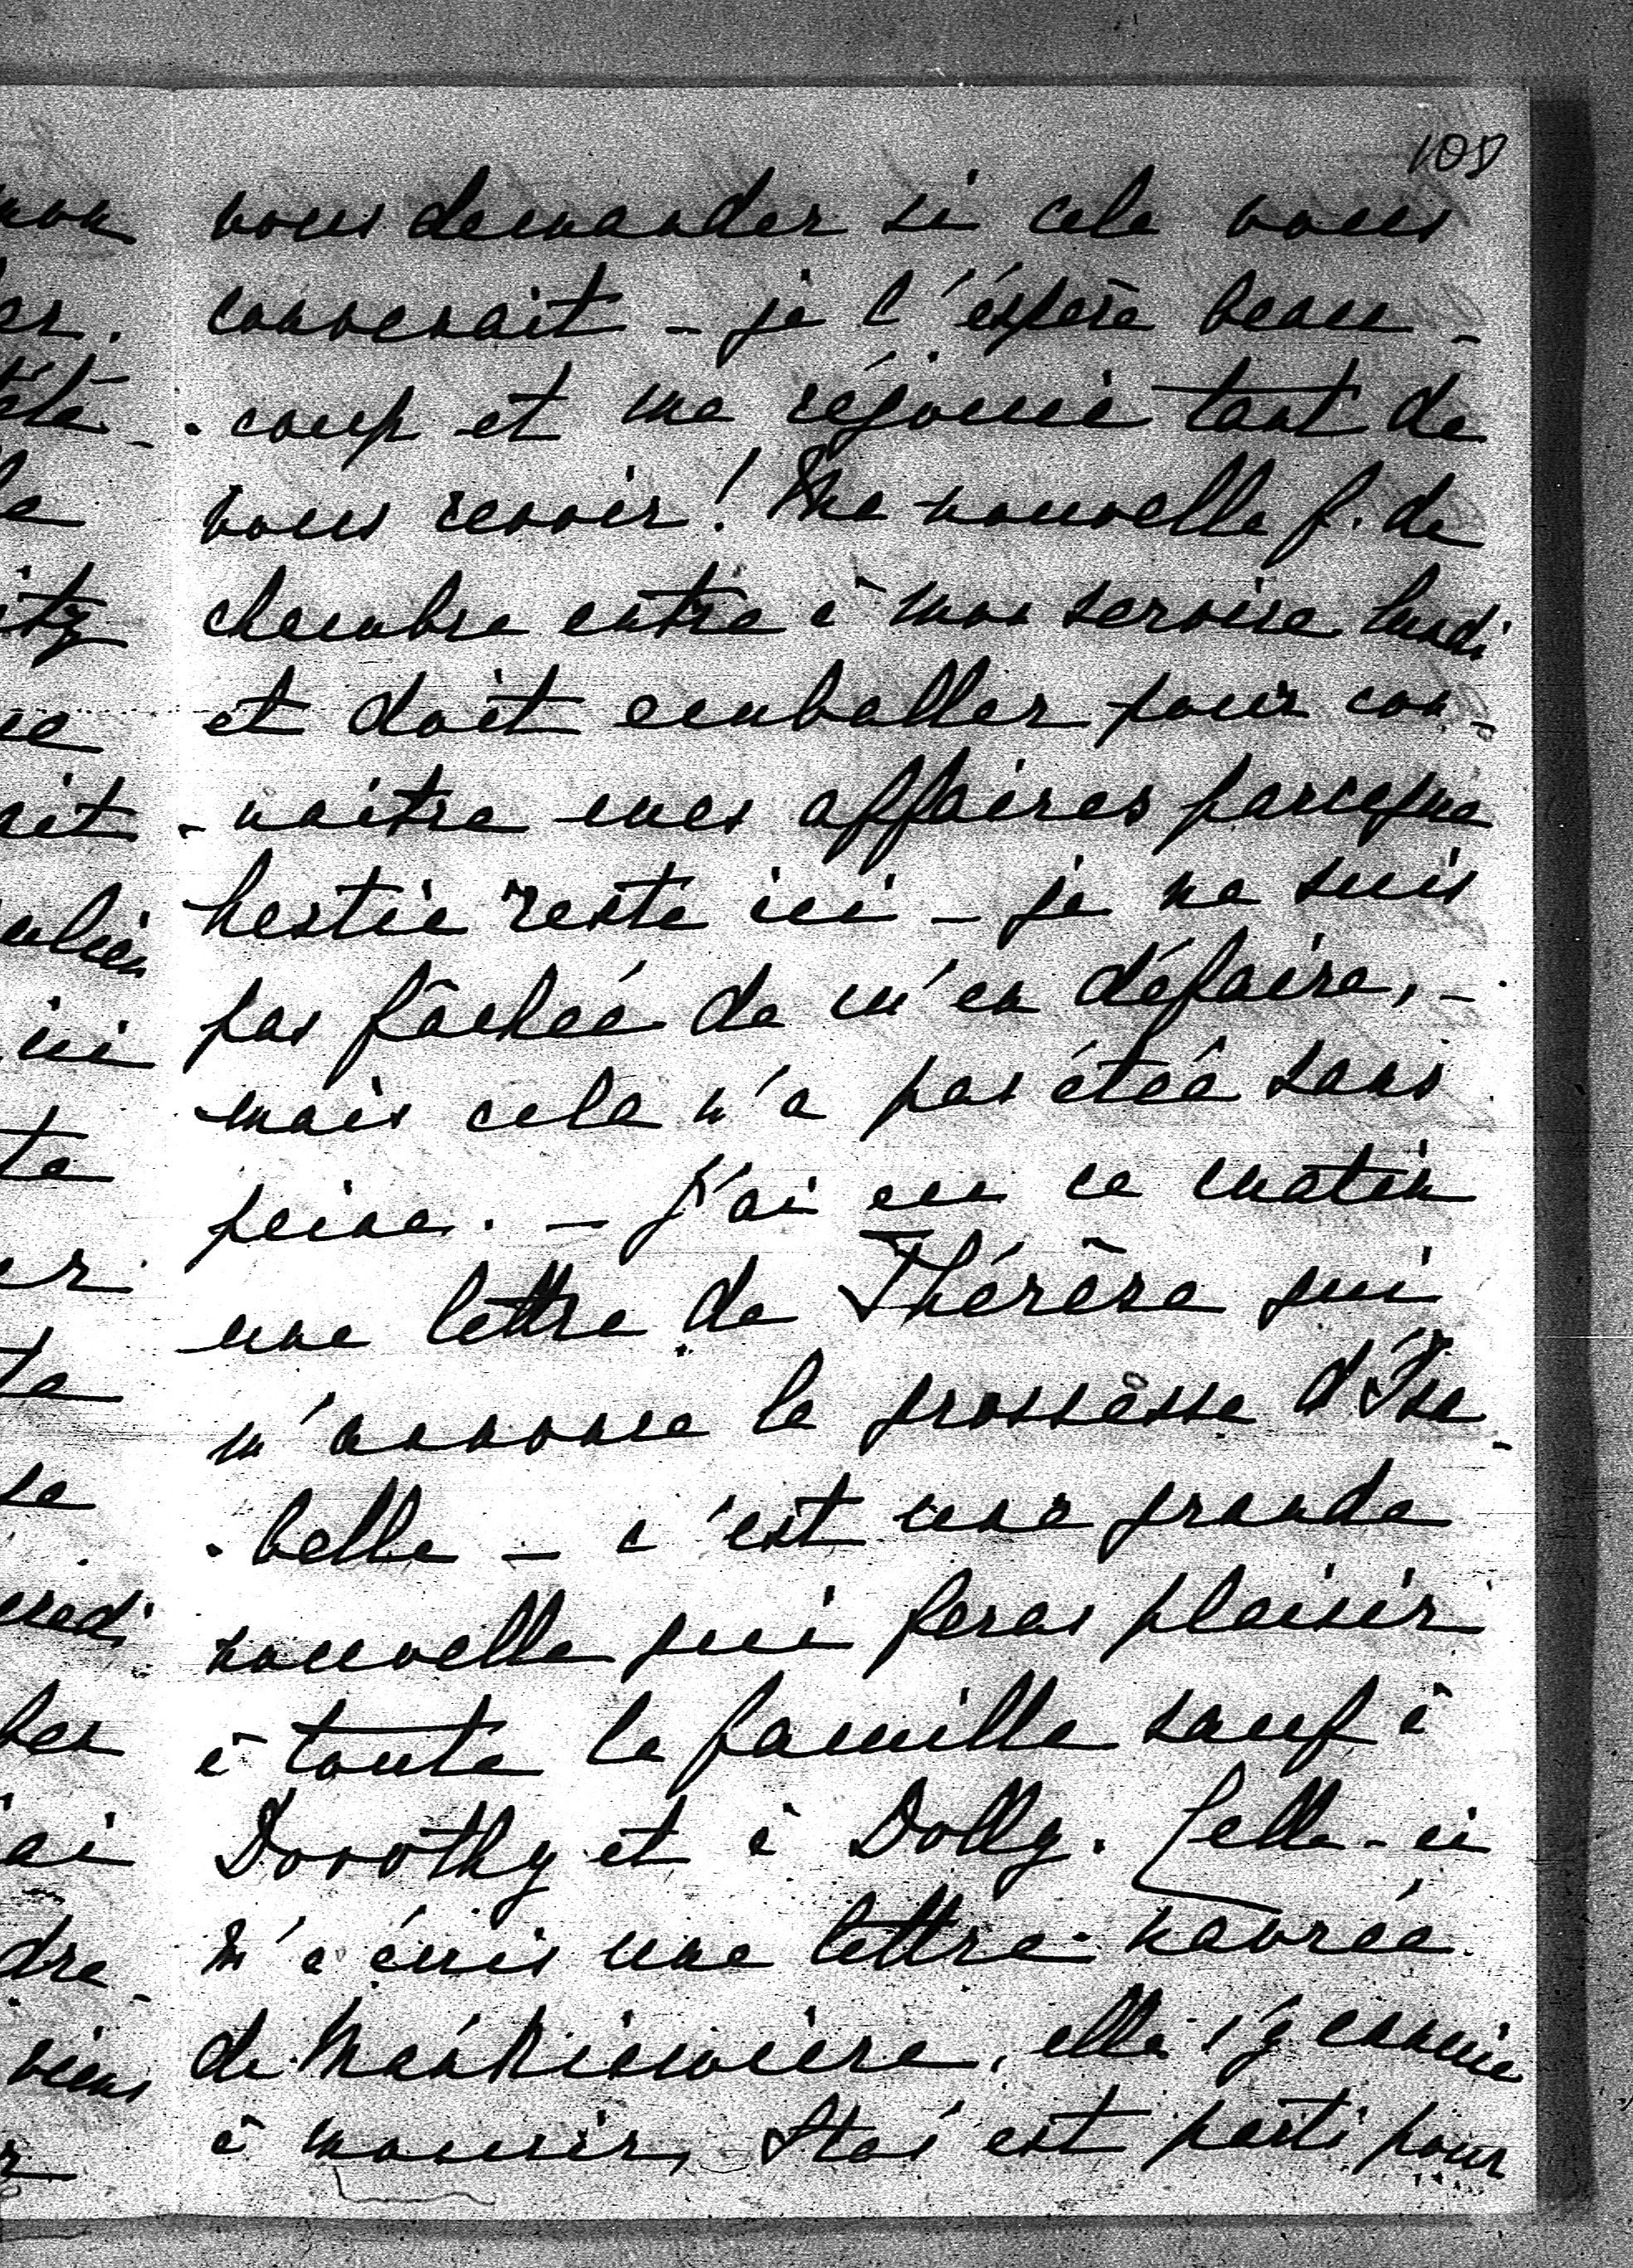 108
vous demander si cela vous
convenait – je l'éspère beau-
-coup et me réjouie tant de
vous revoir! Ma nouvelle f. de
chambre entre à mon service lundi
et doit emballer pour con-
-naitre mes affaires parceque
hestie reste ici – je ne suis
pas fâchée de m'en défaire, –
mais cela n'a pas étée sans
peine. – J'ai eu ce matin
une lettre de Thérèse qui
m'annonce la grossesse d'Isa-
-belle – c'est une grande
nouvelle qui feras plaisir
à toute la famille sauf à
Dorothy et à Dolly. Celle-ci
m'a écris une lettre navrée
de , elle s'y ennuie
à mourir, Stas' est parti pour
mon
er.
été-
la
itz
ue
ait
ici
te
er
te
se
credi
ai
dre-
viens